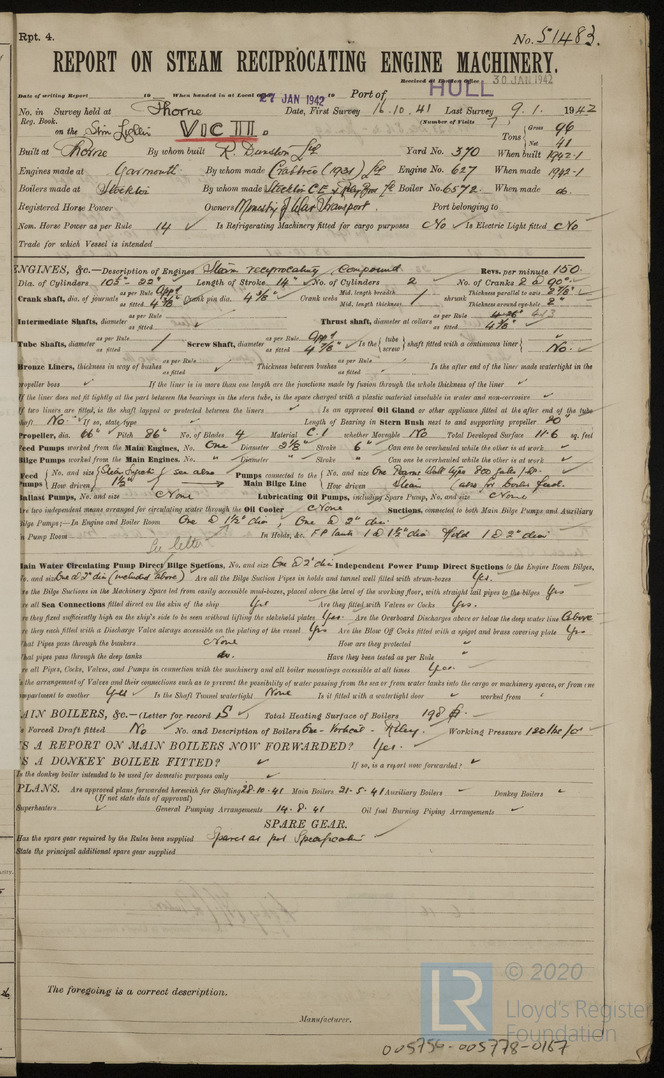 Rpt. 4.
No. 51483.
REPORT ON STEAM RECIPROCATING ENGINE MACHINERY.
Received at London Office 30 JAN 1942
Date of writing Report 19 When handed in at Local Office 27 JAN 1942 19 Port of HULL
No. in Survey held at Thorne Date, First Survey 16.10.41 Last Survey 9.1.1942
Reg. Book. (Number of Visits 7)
on the VIC 11. Tons Gross 96 Net 41
Built at Thorne By whom built R. Dunston Ltd Yard No. 370 When built 1942-1
Engines made at Yarmouth By whom made Crabtree (1931) Ltd Engine No. 627 When made 1942-1
Boilers made at Stockton By whom made Stockton C.E. & Riley Boiler No. 6572. When made do.
Registered Horse Power Owners Ministry of War Transport. Port belonging to
Nom. Horse Power as per Rule 14 Is Refrigerating Machinery fitted for cargo purposes No Is Electric Light fitted No
Trade for which Vessel is intended
ENGINES, &c.—Description of Engines Steam reciprocating compound. Revs. per minute 150
Dia. of Cylinders 10½"-22" Length of Stroke 14" No. of Cylinders 2 No. of Cranks 2 @ 90°
Crank shaft, dia. of journals as per Rule App'd as fitted 4⅜" Crank pin dia. 4⅜" Crank webs Mid. length breadth Mid. length thickness shrunk Thickness parallel to axis 2⅞" Thickness around eye-hole 2"
Intermediate Shafts, diameter as per Rule as fitted Thrust shaft, diameter at collars as per Rule 4.13 as fitted 4⅜"
Tube Shafts, diameter as per Rule as fitted Screw Shaft, diameter as per Rule App'd as fitted 4⅞" Is the tube screw shaft fitted with a continuous liner No.
Bronze Liners, thickness in way of bushes as per Rule as fitted Thickness between bushes as per Rule as fitted Is the after end of the liner made watertight in the
propeller boss If the liner is in more than one length are the junctions made by fusion through the whole thickness of the liner
If the liner does not fit tightly at the part between the bearings in the stern tube, is the space charged with a plastic material insoluble in water and non-corrosive
If two liners are fitted, is the shaft lapped or protected between the liners Is an approved Oil Gland or other appliance fitted at the after end of the tube
shaft No If so, state type Length of Bearing in Stern Bush next to and supporting propeller 20"
Propeller, dia. 66" Pitch 86" No. of Blades 4 Material C.I whether Moveable No Total Developed Surface 11.6 sq. feet
Feed Pumps worked from the Main Engines, No. One Diameter Stroke 6" Can one be overhauled while the other is at work
Bilge Pumps worked from the Main Engines, No. Diameter Stroke Can one be overhauled while the other is at work
Feed Pumps No. and size How driven 1½" see also Pumps connected to the Main Bilge Line No. and size One How driven Steam (also for boiler feed.
Ballast Pumps, No. and size None Lubricating Oil Pumps, including Spare Pump, No. and size None
Are two independent means arranged for circulating water through the Oil Cooler None Suctions, connected to both Main Bilge Pumps and Auxiliary
Bilge Pumps;—In Engine and Boiler Room One @ 1½" dia, One @ 2" dia.
In Pump Room In Holds, &c. F.P. tank 1 @ 1½" dia Hold 1 @ 2" dia
See letter
Main Water Circulating Pump Direct Bilge Suctions, No. and size One @ 2" dia Independent Power Pump Direct Suctions to the Engine Room Bilges,
No. and size One @ 2" dia (included above) Are all the Bilge Suction Pipes in holds and tunnel well fitted with strum-boxes Yes.
Are the Bilge Suctions in the Machinery Space led from easily accessible mud-boxes, placed above the level of the working floor, with straight tail pipes to the bilges Yes
Are all Sea Connections fitted direct on the skin of the ship Yes Are they fitted with Valves or Cocks Yes.
Are they fixed sufficiently high on the ship's side to be seen without lifting the stokehold plates Yes. Are the Overboard Discharges above or below the deep water line Above
Are they each fitted with a Discharge Valve always accessible on the plating of the vessel Yes Are the Blow Off Cocks fitted with a spigot and brass covering plate Yes
What Pipes pass through the bunkers None How are they protected
What pipes pass through the deep tanks do. Have they been tested as per Rule
Are all Pipes, Cocks, Valves, and Pumps in connection with the machinery and all boiler mountings accessible at all times Yes.
Is the arrangement of Valves and their connections such as to prevent the possibility of water passing from the sea or from water tanks into the cargo or machinery spaces, or from one
compartment to another Yes Is the Shaft Tunnel watertight None Is it fitted with a watertight door worked from
MAIN BOILERS, &c.—(Letter for record S) Total Heating Surface of Boilers 198
Is Forced Draft fitted No No. and Description of Boilers One - Vertical - Riley. Working Pressure 120 lbs
IS A REPORT ON MAIN BOILERS NOW FORWARDED? Yes.
IS A DONKEY BOILER FITTED? If so, is a report now forwarded?
Is the donkey boiler intended to be used for domestic purposes only
PLANS. Are approved plans forwarded herewith for Shafting 28-10-41 Main Boilers 21-5-41 Auxiliary Boilers Donkey Boilers
(If not state date of approval)
Superheaters General Pumping Arrangements 14-8-41 Oil fuel Burning Piping Arrangements
SPARE GEAR.
Has the spare gear required by the Rules been supplied Spares as per Specification
State the principal additional spare gear supplied
The foregoing is a correct description.
Manufacturer.
LR © 2020
Lloyd's Register
Foundation
005754-005778-0167